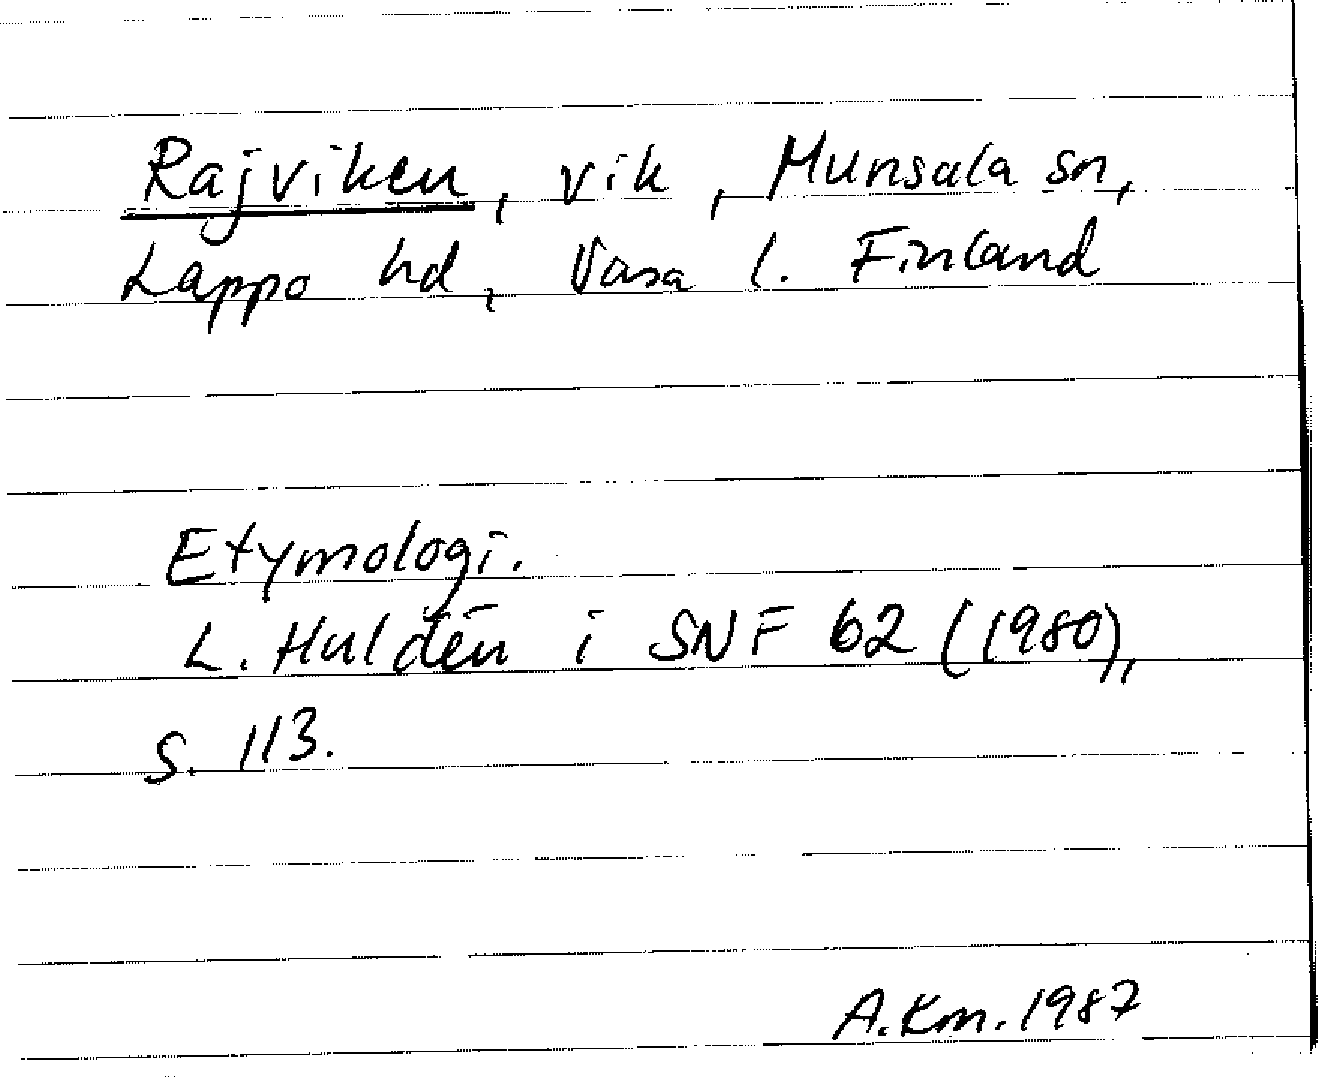 Rajviken, vik, Munsala sn,
Lappo hd, Vasa l. Finland
Etymologi.
L. Huldén i SNF 62 (1980),
s. 113.
A.Km. 1987